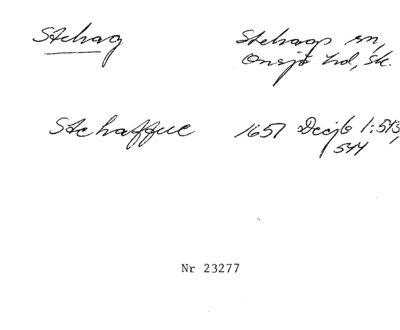 Stehag Stehags sn,
Onsjö hd, Sk.
Stehaffue 1651 Dccjb 1:543,
544
Nr 23277